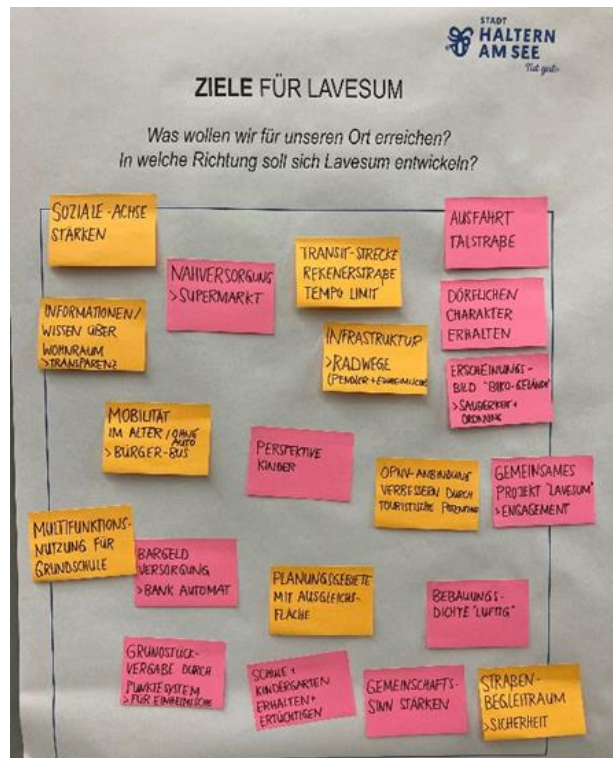 STADT
HALTERN
AM SEE
Tut gut.
ZIELE FÜR LAVESUM
Was wollen wir für unseren Ort erreichen?
In welche Richtung soll sich Lavesum entwickeln?
SOZIALE-ACHSE
STÄRKEN
NAHVERSORGUNG
>SUPERMARKT
TRANSIT-STRECKE
REKENERSTRAßE
TEMPO LIMIT
AUSFAHRT
TALSTRAßE
INFORMATIONEN/
WISSEN ÜBER
WOHNRAUM
>TRANSPARENZ
INFRASTRUKTUR
>RADWEGE
(PENDLER+EINHEIMISCHE)
DÖRFLICHEN
CHARAKTER
ERHALTEN
ERSCHEINUNGS-
BILD "BIKO-GELÄNDE"
>SAUBERKEIT+
ORDNUNG
MOBILITÄT
IM ALTER/OHNE
AUTO
>BÜRGER-BUS
PERSPEKTIVE
KINDER
ÖPNV-ANBINDUNG
VERBESSERN DURCH
TOURISTISCHE
GEMEINSAMES
PROJEKT "LAVESUM"
>ENGAGEMENT
MULTIFUNKTIONS-
NUTZUNG FÜR
GRUNDSCHULE
BARGELD
VERSORGUNG
>BANK AUTOMAT
PLANUNGSGEBIETE
MIT AUSGLEICHS-
FLÄCHE
BEBAUUNGS-
DICHTE "LUFTIG"
GRUNDSTÜCK-
VERGABE DURCH
PUNKTESYSTEM
>FÜR EINHEIMISCHE
SCHULE+
KINDERGARTEN
ERHALTEN+
ERTÜCHTIGEN
GEMEINSCHAFTS-
SINN STÄRKEN
STRAßEN-
BEGLEITRAUM
>SICHERHEIT